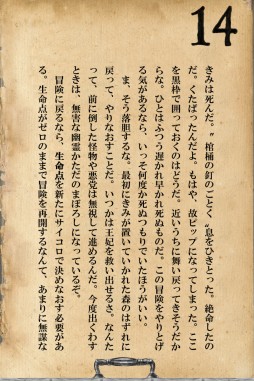 14
きみは死んだ。〝棺桶の釘のごとく〟息をひきとった。絶命したの
だ。くたばったんだよ。もはや、故ピップになってしまった。ここ
を黒枠で囲っておくのはどうだ。近いうちに舞い戻ってきそうだか
らな。ひとはふつう遅かれ早かれ死ぬものだ。この冒険をやりとげ
る気があるなら、いっそ何度か死ぬつもりでいたほうがいい。
ま、そう落胆するな。最初にきみが置いていかれた森のはずれに
戻って、やりなおすことだ。いつかは王妃を救い出せるさ。なんた
って、前に倒した怪物や悪党は無視して進めるんだ。今度出くわす
ときは、無害な幽霊かただのまぼろしになっているぞ。
冒険に戻るなら、生命点を新たにサイコロで決めなおす必要があ
る。生命点がゼロのままで冒険を再開するなんて、あまりに無謀な